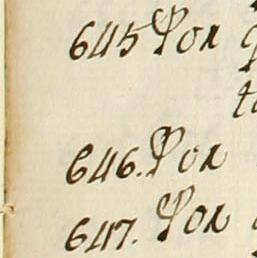 645 Por
646. Por
647. Por